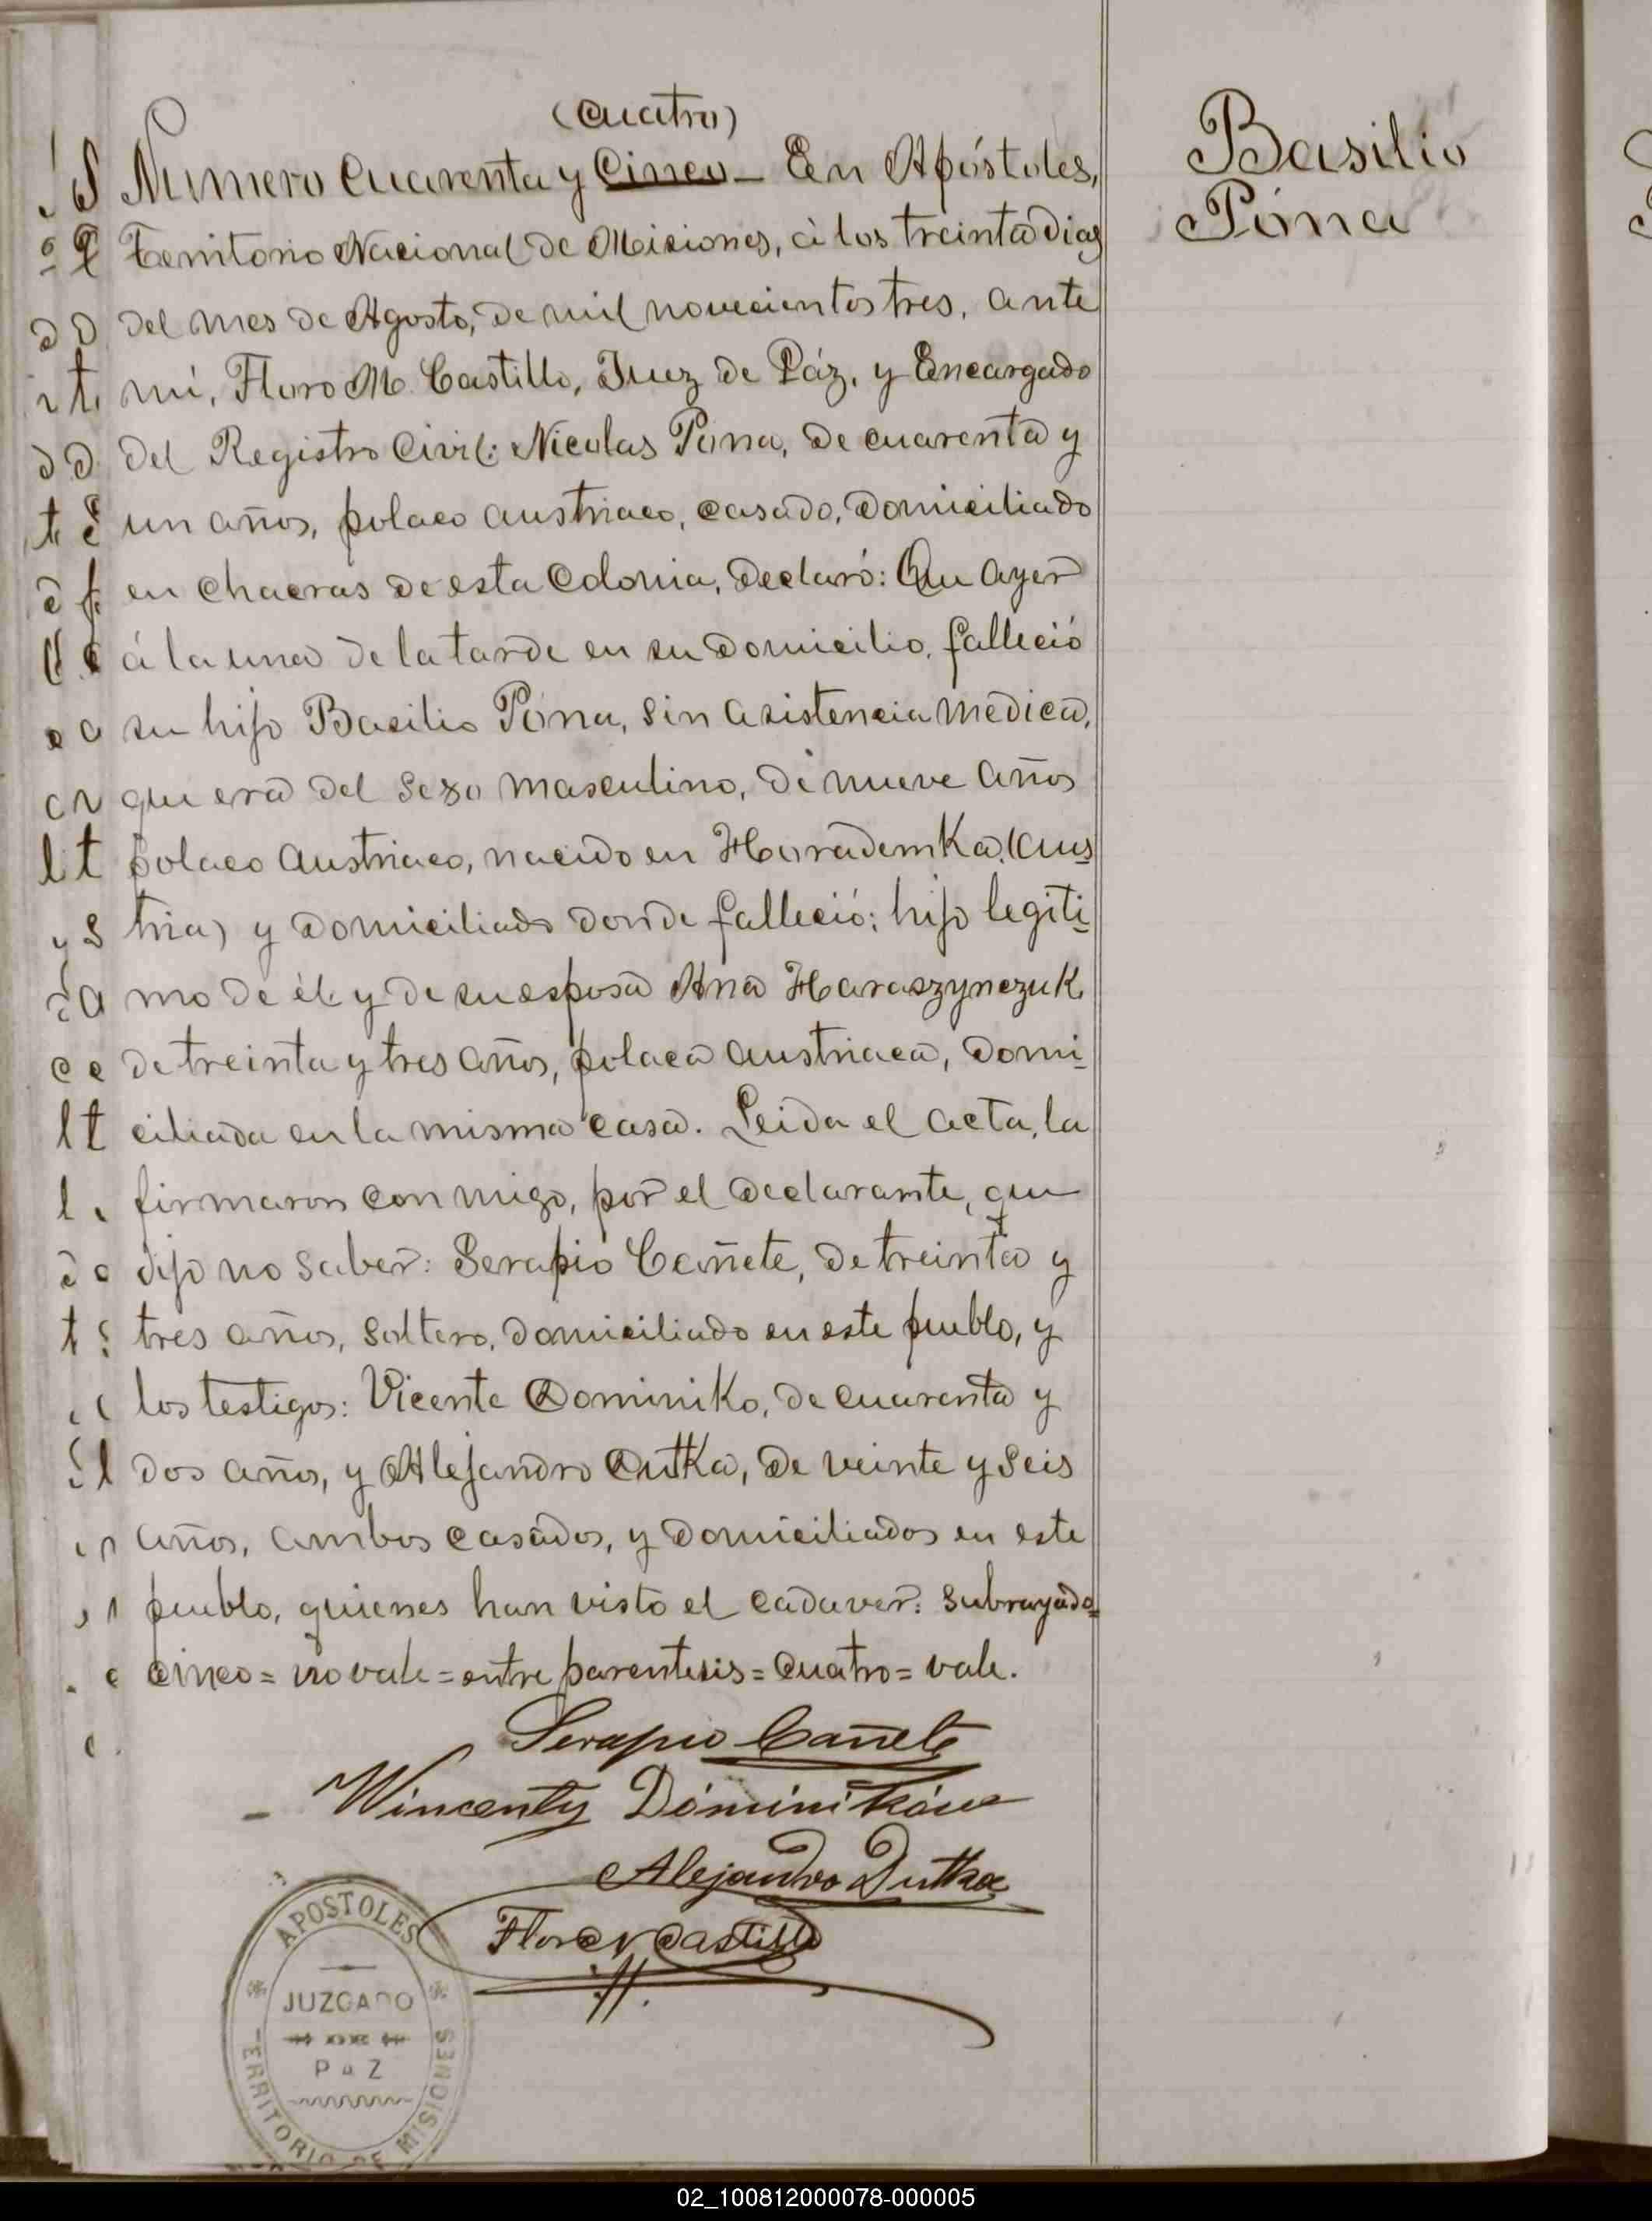 (Cuatro)
Numero Cuarenta y Cinco - En Apóstoles,
Territorio Nacional de Misiones, à los treinta dias
del mes de Agosto, de mil novecientos tres, ante
mi, Floro M. Castillo, Juez de Páz, y Encargado
del Registro Civil: Nicolas Pona, de cuarenta y
un años, polaco austriaco, casado, domiciliado
en chacras de esta Colonia, declaró: Que ayer
á la una de la tarde en su domicilio, falleció
su hijo Basilio Póna, sin asistencia médica,
que era del sexo masculino, de nueve años
polaco austriaco, nacido en Horademka, (Aus
tria) y domiciliado donde falleció; hijo legiti-
mo de él y de su esposa Ana Haraszynczuk
de treinta y tres años, polaca austriaca, domi-
ciliada en la misma casa. Leida el acta, la
firmaron con migo, por el declarante, que
dijo no saber: Serapio Cañete, de treinta y
tres años, soltero, domiciliado en este pueblo, y
los testigos: Vicente Dominiko, de cuarenta y
dos años, y Alejandro Dutka, de veinte y seis
años, ambos casados, y domiciliados en este
pueblo, quienes han visto el cadaver: subrayado=
cinco = no vale = entre parentesis = Cuatro = vale.
Serapio Cañete
Wincenty Dóminików
Alejandro Dutka
Floro M Castillo
Basilio
Póna
APOSTOLES
JUZGADO
DE
PAZ
TERRITORIO DE MISIONES
02_100812000078-000005